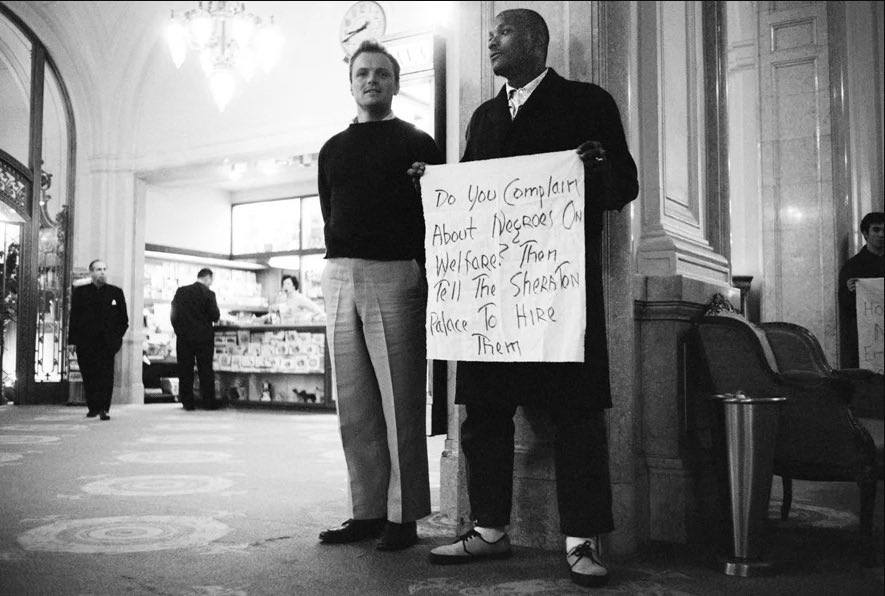 Do You Complain
About Negroes On
Welfare? Then
Tell The Sheraton
Palace To Hire
Them